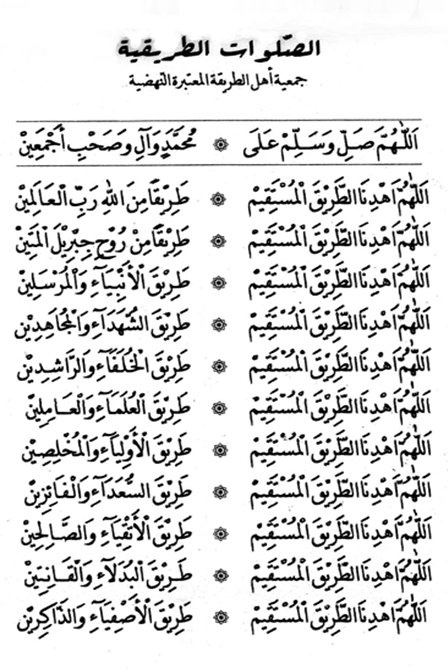 الصّلوات الطريقية
جمعية أهل الطريقة المعتبرة النهضية
اَللّٰهُمَّ صَلِّ وَسَلِّمْ عَلَى ۞ مُحَمَّدٍ وَآلِ وَصَحْبِ أَجْمَعِيْنْ
اَللّٰهُمَّ اهْدِنَا الطَّرِيْقَ الْمُسْتَقِيْمْ ۞ طَرِيْقًا مِنَ اللهِ رَبِّ الْعَالَمِيْنْ
اَللّٰهُمَّ اهْدِنَا الطَّرِيْقَ الْمُسْتَقِيْمْ ۞ طَرِيْقًا مِنْ رُوْحِ جِبْرِيْلَ الْمَتِيْنْ
اَللّٰهُمَّ اهْدِنَا الطَّرِيْقَ الْمُسْتَقِيْمْ ۞ طَرِيْقَ الْأَنْبِيَآءِ وَالْمُرْسَلِيْنْ
اَللّٰهُمَّ اهْدِنَا الطَّرِيْقَ الْمُسْتَقِيْمْ ۞ طَرِيْقَ الشُّهَدَآءِ وَالْمُجَاهِدِيْنْ
اَللّٰهُمَّ اهْدِنَا الطَّرِيْقَ الْمُسْتَقِيْمْ ۞ طَرِيْقَ الْخُلَفَآءِ وَالرَّاشِدِيْنْ
اَللّٰهُمَّ اهْدِنَا الطَّرِيْقَ الْمُسْتَقِيْمْ ۞ طَرِيْقَ الْعُلَمَآءِ وَالْعَامِلِيْنْ
اَللّٰهُمَّ اهْدِنَا الطَّرِيْقَ الْمُسْتَقِيْمْ ۞ طَرِيْقَ الْأَوْلِيَآءِ وَالْمُخْلِصِيْنْ
اَللّٰهُمَّ اهْدِنَا الطَّرِيْقَ الْمُسْتَقِيْمْ ۞ طَرِيْقَ السُّعَدَآءِ وَالْفَائِزِيْنْ
اَللّٰهُمَّ اهْدِنَا الطَّرِيْقَ الْمُسْتَقِيْمْ ۞ طَرِيْقَ الْأَتْقِيَآءِ وَالصَّالِحِيْنْ
اَللّٰهُمَّ اهْدِنَا الطَّرِيْقَ الْمُسْتَقِيْمْ ۞ طَرِيْقَ الْبُدَلَآءِ وَالْقَانِتِيْنْ
اَللّٰهُمَّ اهْدِنَا الطَّرِيْقَ الْمُسْتَقِيْمْ ۞ طَرِيْقَ الْأَصْفِيَآءِ وَالذَّاكِرِيْنْ